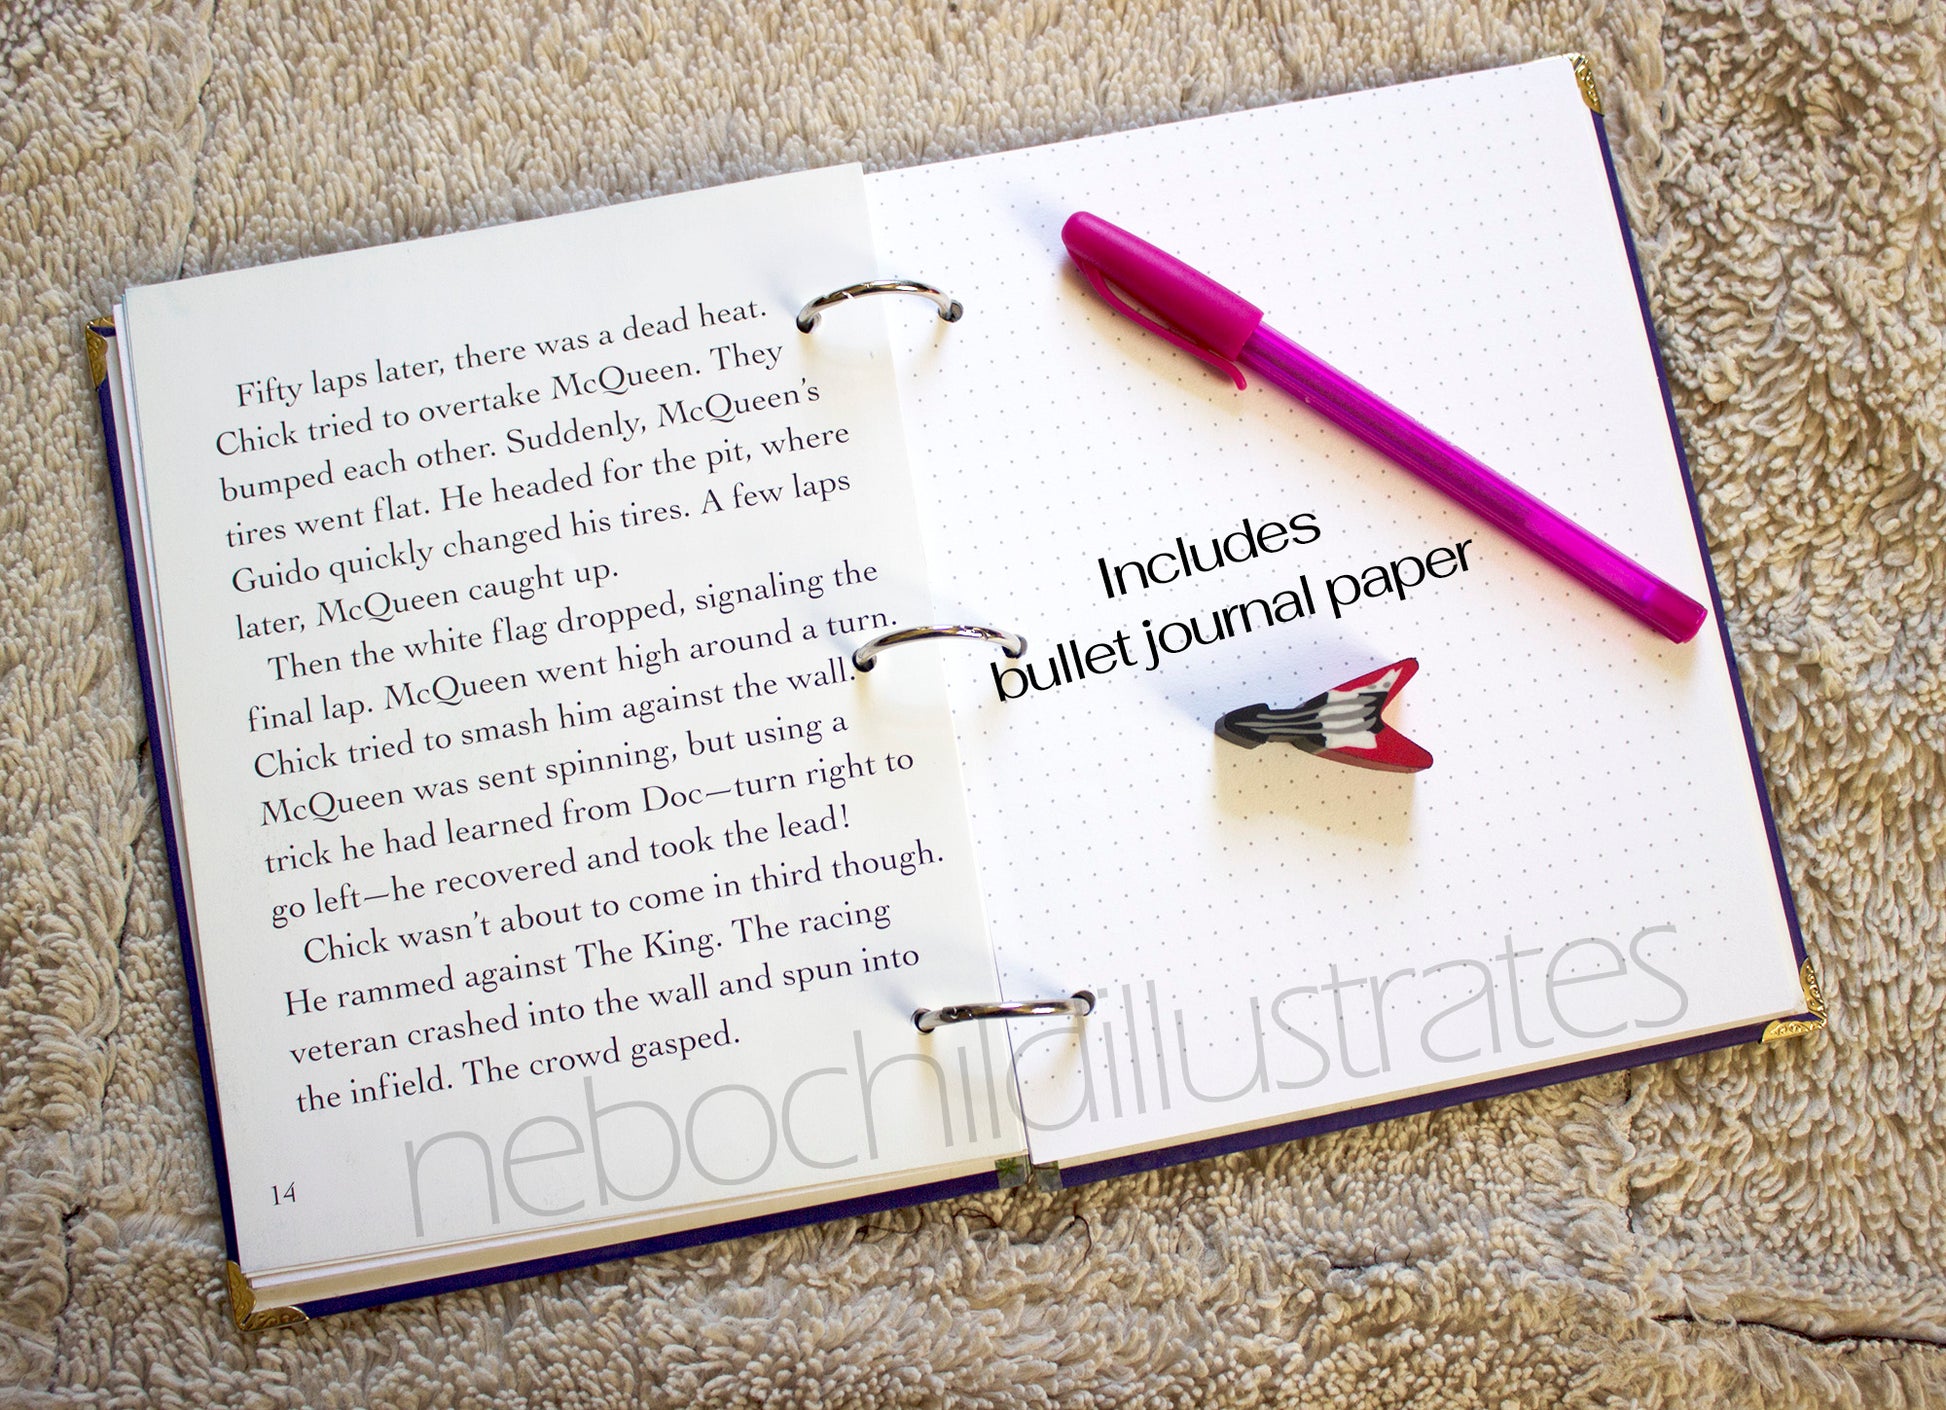 Fifty laps later, there was a dead heat.
Chick tried to overtake McQueen. They
bumped each other. Suddenly, McQueen's
tires went flat. He headed for the pit, where
Guido quickly changed his tires. A few laps
later, McQueen caught up.
Then the white flag dropped, signaling the
final lap. McQueen went high around a turn.
Chick tried to smash him against the wall.
McQueen was sent spinning, but using a
trick he had learned from Doc—turn right to
go left—he recovered and took the lead!
Chick wasn't about to come in third though.
He rammed against The King. The racing
veteran crashed into the wall and spun into
the infield. The crowd gasped.
14
Includes
bullet journal paper
nebochildillustrates